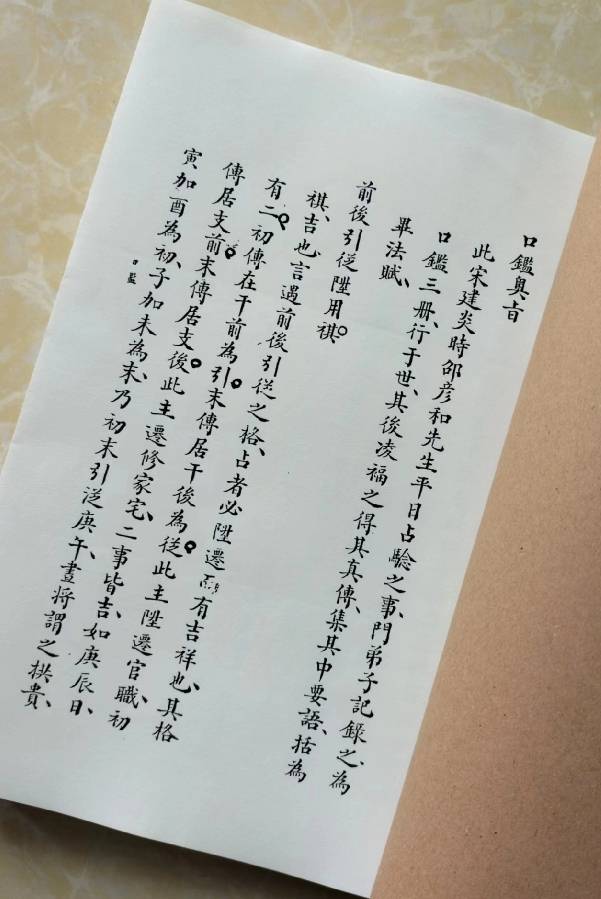 口鑑奧旨
此宋建炎時邵彦和先生平日占驗之事、門弟子記錄之、為
口鑑三册、行于世、其後凌福之得其真傳、集其中要語、括為
畢法賦、
前後引從陞用祺。
祺、吉也言遇前後引從之格、占者必陞遷有吉祥也、其格
有二。初傳在干前為引。末傳居干後為從。此主陞遷官職、初
傳居支前。末傳居支後。此主遷修家宅、二事皆吉、如庚辰日、
寅加酉為初、子加未為末、乃初末引從庚午、晝將謂之拱貴、
口鑑